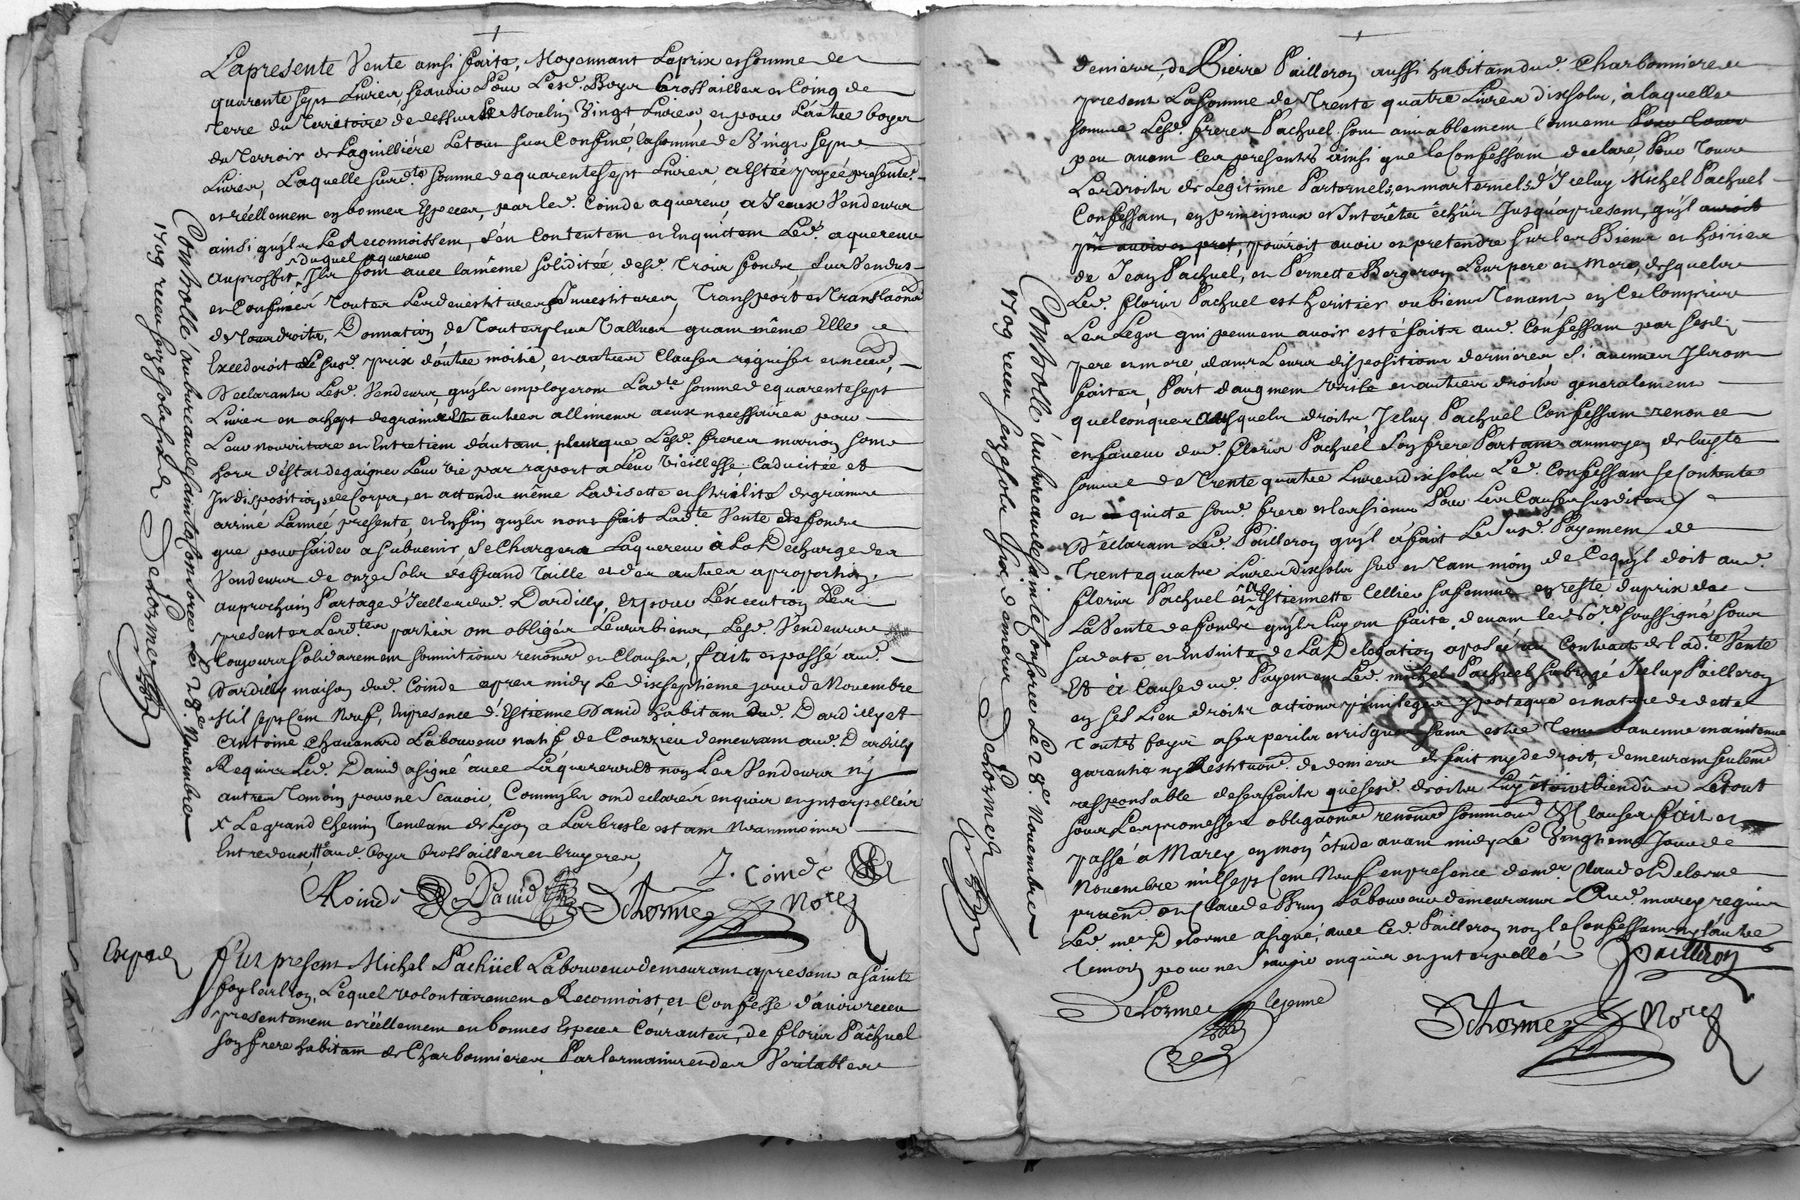 La presente Vente ainsi faite, Moyennant Le prix et somme de
quarente sept Livres scavoir Pour Lesd. Boys brossailles et Coing de
Terre du Territoire de dessus Le Moulin Vingt Livres et pour L'autre boys
du Terroir de Laguilliére Le tout sus Confiné, la somme de Vingt sept
Livres, Laquelle susd.te somme de quarente sept Livres, a estée payée presente.
et réellement en bonnes Especes, par led. Coinde aquereur a Iceux Vendeurs
ainsi quils Le Reconnoissent, s'en Contentent et Enquittent Led. aquereur
duquel aquereur
Au proffit Ils font avec la même soliditée, desd. trois fonds sus Vendus
et Confinés Toutes Les devestitures Investitures, Transport et Translaõns
de tous droits, Donnation de Toute plus Vallue, quam même Elle
Excederoit Le susd. prix d'outre moitié, et autres Clauses requises et necess.,
Déclarants Lesd. Vendeurs, quils employeront Lad.te somme de quarente sept
Livres en achapt de grains Et autres allimens a eux necessaires pour
Leur nourriture et Entretiem d'autant plus que Lesd. freres marion sont
hors d'Estat de gaigner Leur Vie par raport a Leur Vieillesse Caducitée et
Indisposition de Corps, et attendu même La disette et sterilité de grains
arrivé L'anneé presente, et Enfin quils nont fait Lad.te Vente de fonds
que pour s'aider a subvenir Se Chargera L'aquereur à La Decharge des
Vendeurs de onze Sols de Grand Taille et des autres a proportion,
au prochain Partage d'Icelles dud. Dardilly, Et pour L'execution des
presentes Lesd.tes parties ont obligés Leurs biens, Lesd. Vendeurs
Toujours solidairement soumitions renonc. et Clauses, fait et passé aud.
Dardilly maison dud. Coinde apres midy Le dix septieme jour de Novembre
Mil sept Cent Neuf, En presence d'Estienne David habitant dud. Dardilly et
Antoine Chavanard Laboureur natif de Courzieu demeurant aud. Dardilly
Requis Led. David a signé avec L'aquereur Et non Les Vendeurs ny
autres Témoin pour ne Scavoir, Comm'ils ont declarés enquis et interpellés
x Le grand Chemin Tendant de Lyon a Larbresle estant Neanmoins
Entredeux, aud. boys brossailles et bruyeres,
J. Coinde
A Coinde David Delorme Nore
Controllé au bureau de Sainte Consorce Le 28e Novembre
1709 receu
Delorme
Expedié
Fut present Michel Pachüel Laboureur demeurant a present a Sainte
foy Les Lyon, Lequel volontairement Reconnoist et Confesse d'avoir receu
presentement et réellement en bonnes Especes Courantes, de Floris Pachuel
son frere habitant de Charbonnieres Par les mains et des Veritables
deniers, de Pierre Pailleron aussi habitant dud. Charbonnieres
present La somme de Trente quatre Livres dix sols, a laquelle
somme Lesd. freres Pachuel sont aimablement Convenu
peu avant les presentes ainsi que le Confessant declare, Pour Tous
Les droits de Legitime Parternels, et marternels d'Iceluy Michel Pachuel
Confessant, en principaux et Interêts êchus Jusqu'a present, quyl
pourroit avoir et pretendre sur les Biens et hoiries
de Jean Pachuel, et Pernette Bergeron Leurs pere et Mere, desquels
Led. Floris Pachuel est heritier ou biens Tenant en Ce Compris
Les Legs qui peuvent avoir esté faits aud. Confessant par sesd.
pere et mere, dans Leurs dispositions dernieres si aucunes Ils ont
faites, Part d'augment virile et autres droits generalement
quelconques Ausquels droits, Iceluy Pachuel Confessant renonce
en faveur dud. Floris Pachuel son frere Partant au moyen de lad.te
somme de Trente quatre Livres dix sols Led. Confessant se Contente
et quitte sond. frere et les siens Pour Les Causes susdites
Déclarant Led. Pailleron quyl a fait Le susd. Payement de
Trente quatre Livres dix sols sur et tant moin de Ce quyl doit aud.
Floris Pachuel et a Estiennette Cellier sa femme en reste du prix de
La Vente de fonds quyls luy ont faite, devant le No.re soussigné sous
sa date, et Ensuite de La Delegation aposée au Contract de lad.te Vente
Et à Cause dud. Payement Led. michel Pachuel subrogé Iceluy Pailleron
en ses Lieu droits actions privileges ypoteque et nature de dette
Toutes foys a ses perils et risques
garantia ny Restituon. de deniers de fait ny de droit, demeurant seulem.
responsable de ses faits quesesd. droits Luy étoint bien dû et Le tout
sous Les promesses obligaons renonc. soumions & Clauses fait et
passé à Marcy en mon étude avant midy Le Vingtieme Jour de
Novembre mil sept Cent Neuf en presence de mer Claude Delorme
praticn. et Claude Brun Laboureur demeurans Aud. marcy requis
Led. me Delorme a signé, avec Led. Pailleron non le Confessant ny l'autre
temoin pour ne scavoir enquis et interpellés
Pailleron
Delorme le jeune
Delorme Nore
Controllé au bureau de Sainte Consorce Le 28e Novembre
1709 receu Six deniers Delorme